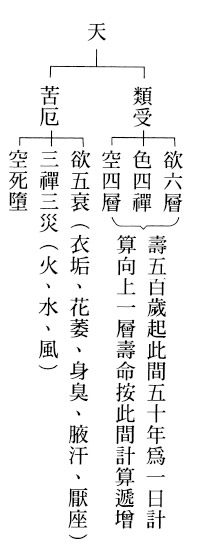 天
類受
欲六層
色四禪
空四層
壽五百歲起此間五十年為一日計
算向上一層壽命按此間計算遞增
苦厄
欲五衰（衣垢、花萎、身臭、腋汗、厭座）
三禪三災（火、水、風）
空死墮